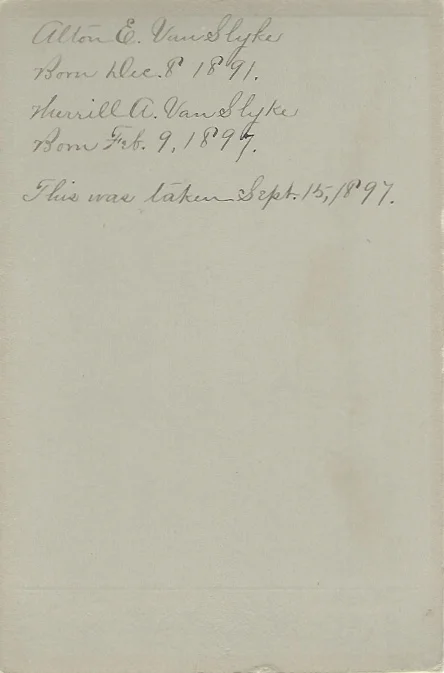 Alton E. VanSlyke
Born Dec. 8 1891.
Merrill A. VanSlyke
Born Feb. 9, 1897.
This was taken Sept. 15, 1897.